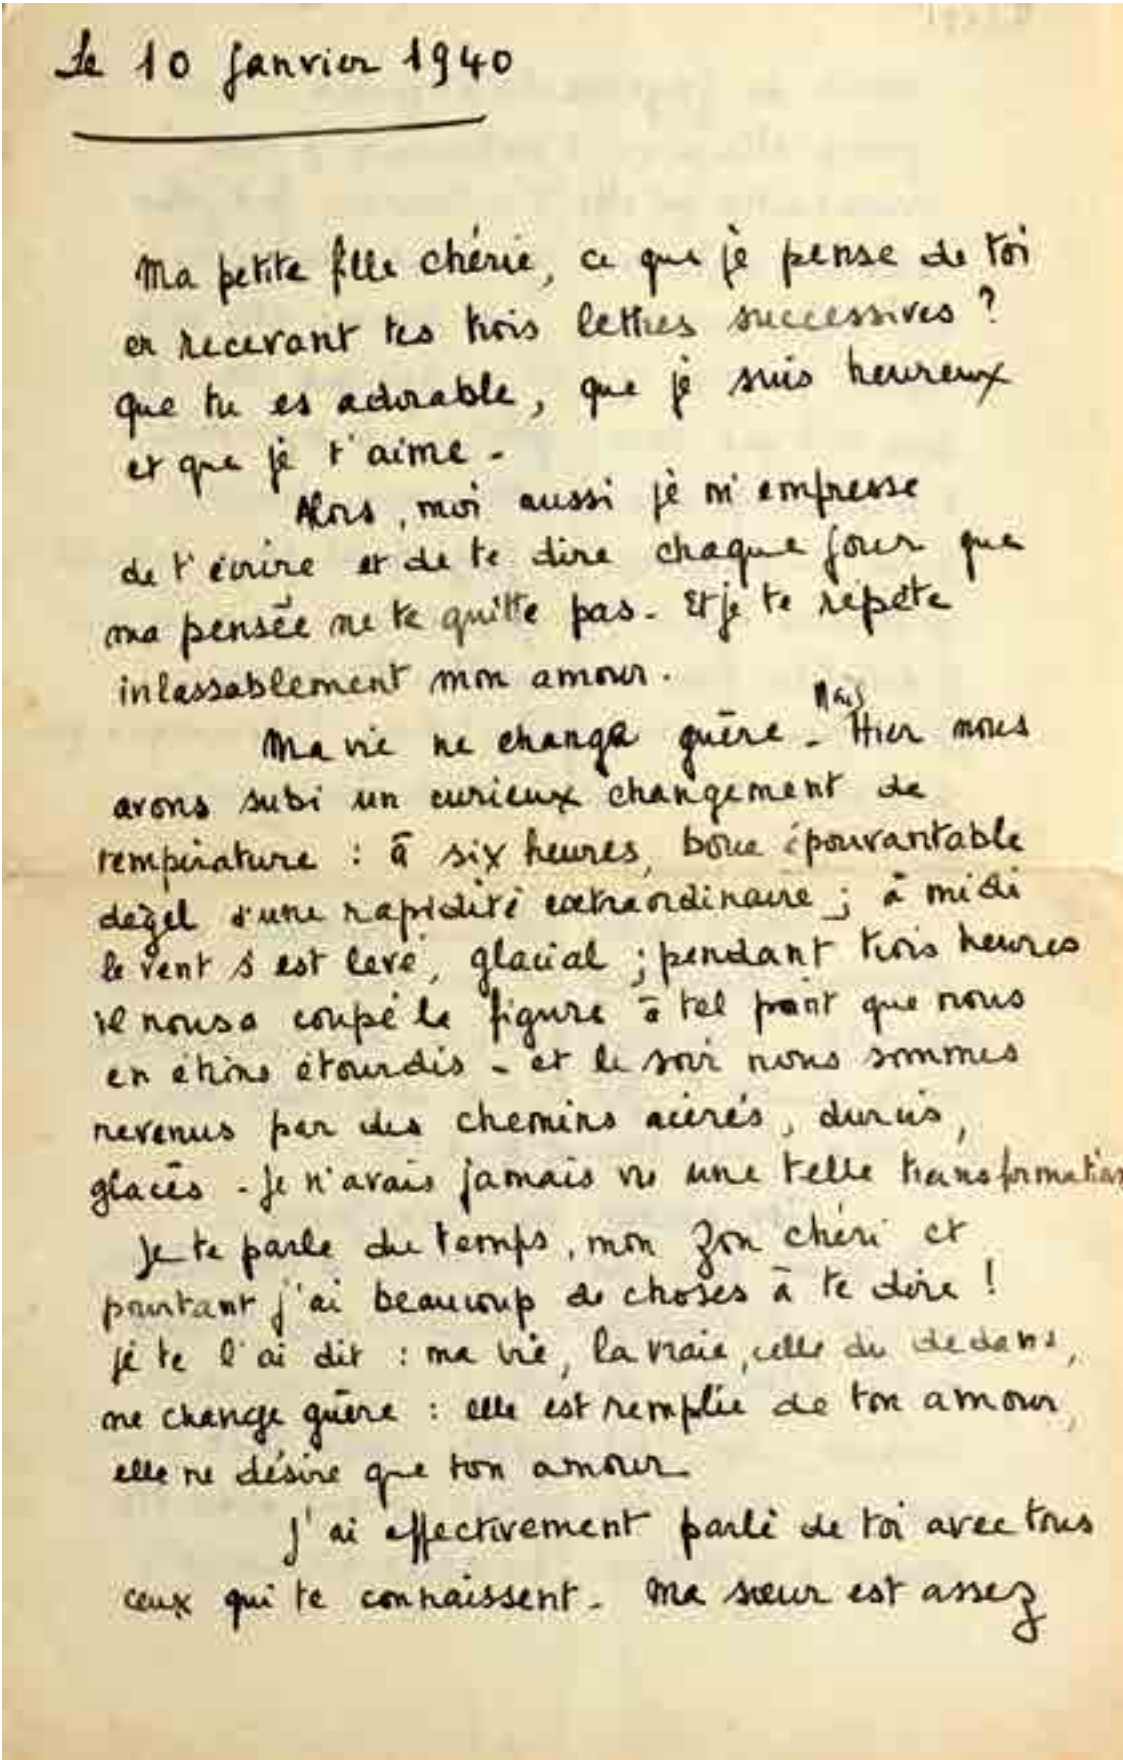 Le 10 Janvier 1940
Ma petite fille chérie, ce que je pense de toi
en recevant tes trois lettres successives ?
que tu es adorable, que je suis heureux
et que je t'aime -
Alors, moi aussi je m'empresse
de t'écrire et de te dire chaque jour que
ma pensée ne te quitte pas - Et je te répète
inlassablement mon amour.
Mais
Ma vie ne change guère - Hier nous
avons subi un curieux changement de
température : à six heures, boue épouvantable
dégel d'une rapidité extraordinaire ; à midi
le vent s'est levé, glacial ; pendant trois heures
il nous a coupé la figure à tel point que nous
en étions étourdis - et le soir nous sommes
revenus par des chemins acérés, durcis,
glacés - Je n'avais jamais vu une telle transformation
Je te parle du temps, mon Zon chéri et
pourtant j'ai beaucoup de choses à te dire !
je te l'ai dit : ma vie, la vraie, celle du dedans,
ne change guère : elle est remplie de ton amour,
elle ne désire que ton amour
J'ai effectivement parlé de toi avec tous
ceux qui te connaissent - Ma sœur est assez